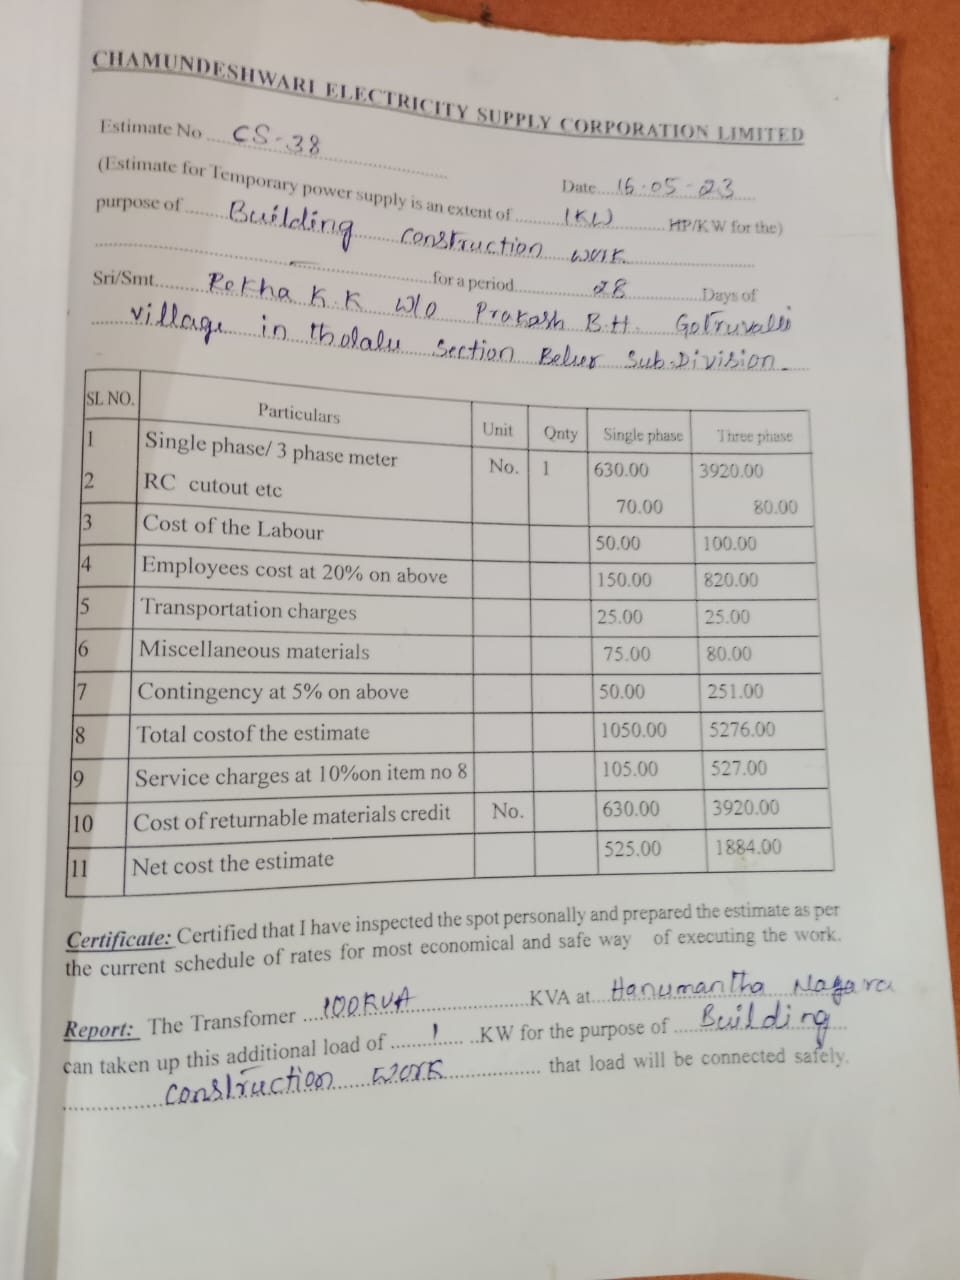 CHAMUNDESHWARI ELECTRICITY SUPPLY CORPORATION LIMITED
Estimate No ... CS-38
Date... 16-05-23
(Estimate for Temporary power supply is an extent of ... 1KW ... HP/KW for the)
purpose of ... Building construction work
... for a period ... 28 ... Days of
Sri/Smt... Rekha K.K W/o Prakash B.H.
village in tholalu section Belur Sub-Division
SL NO. Particulars Unit Qnty Single phase Three phase
1 Single phase/ 3 phase meter No. 1 630.00 3920.00
2 RC cutout etc 70.00 80.00
3 Cost of the Labour 50.00 100.00
4 Employees cost at 20% on above 150.00 820.00
5 Transportation charges 25.00 25.00
6 Miscellaneous materials 75.00 80.00
7 Contingency at 5% on above 50.00 251.00
8 Total costof the estimate 1050.00 5276.00
9 Service charges at 10%on item no 8 105.00 527.00
10 Cost of returnable materials credit No. 630.00 3920.00
11 Net cost the estimate 525.00 1884.00
Certificate: Certified that I have inspected the spot personally and prepared the estimate as per
the current schedule of rates for most economical and safe way of executing the work.
Report: The Transfomer ... 100KVA ... KVA at... Hanumantha Nagara
can taken up this additional load of ... 1 ... KW for the purpose of ... Building
construction work ... that load will be connected safely.